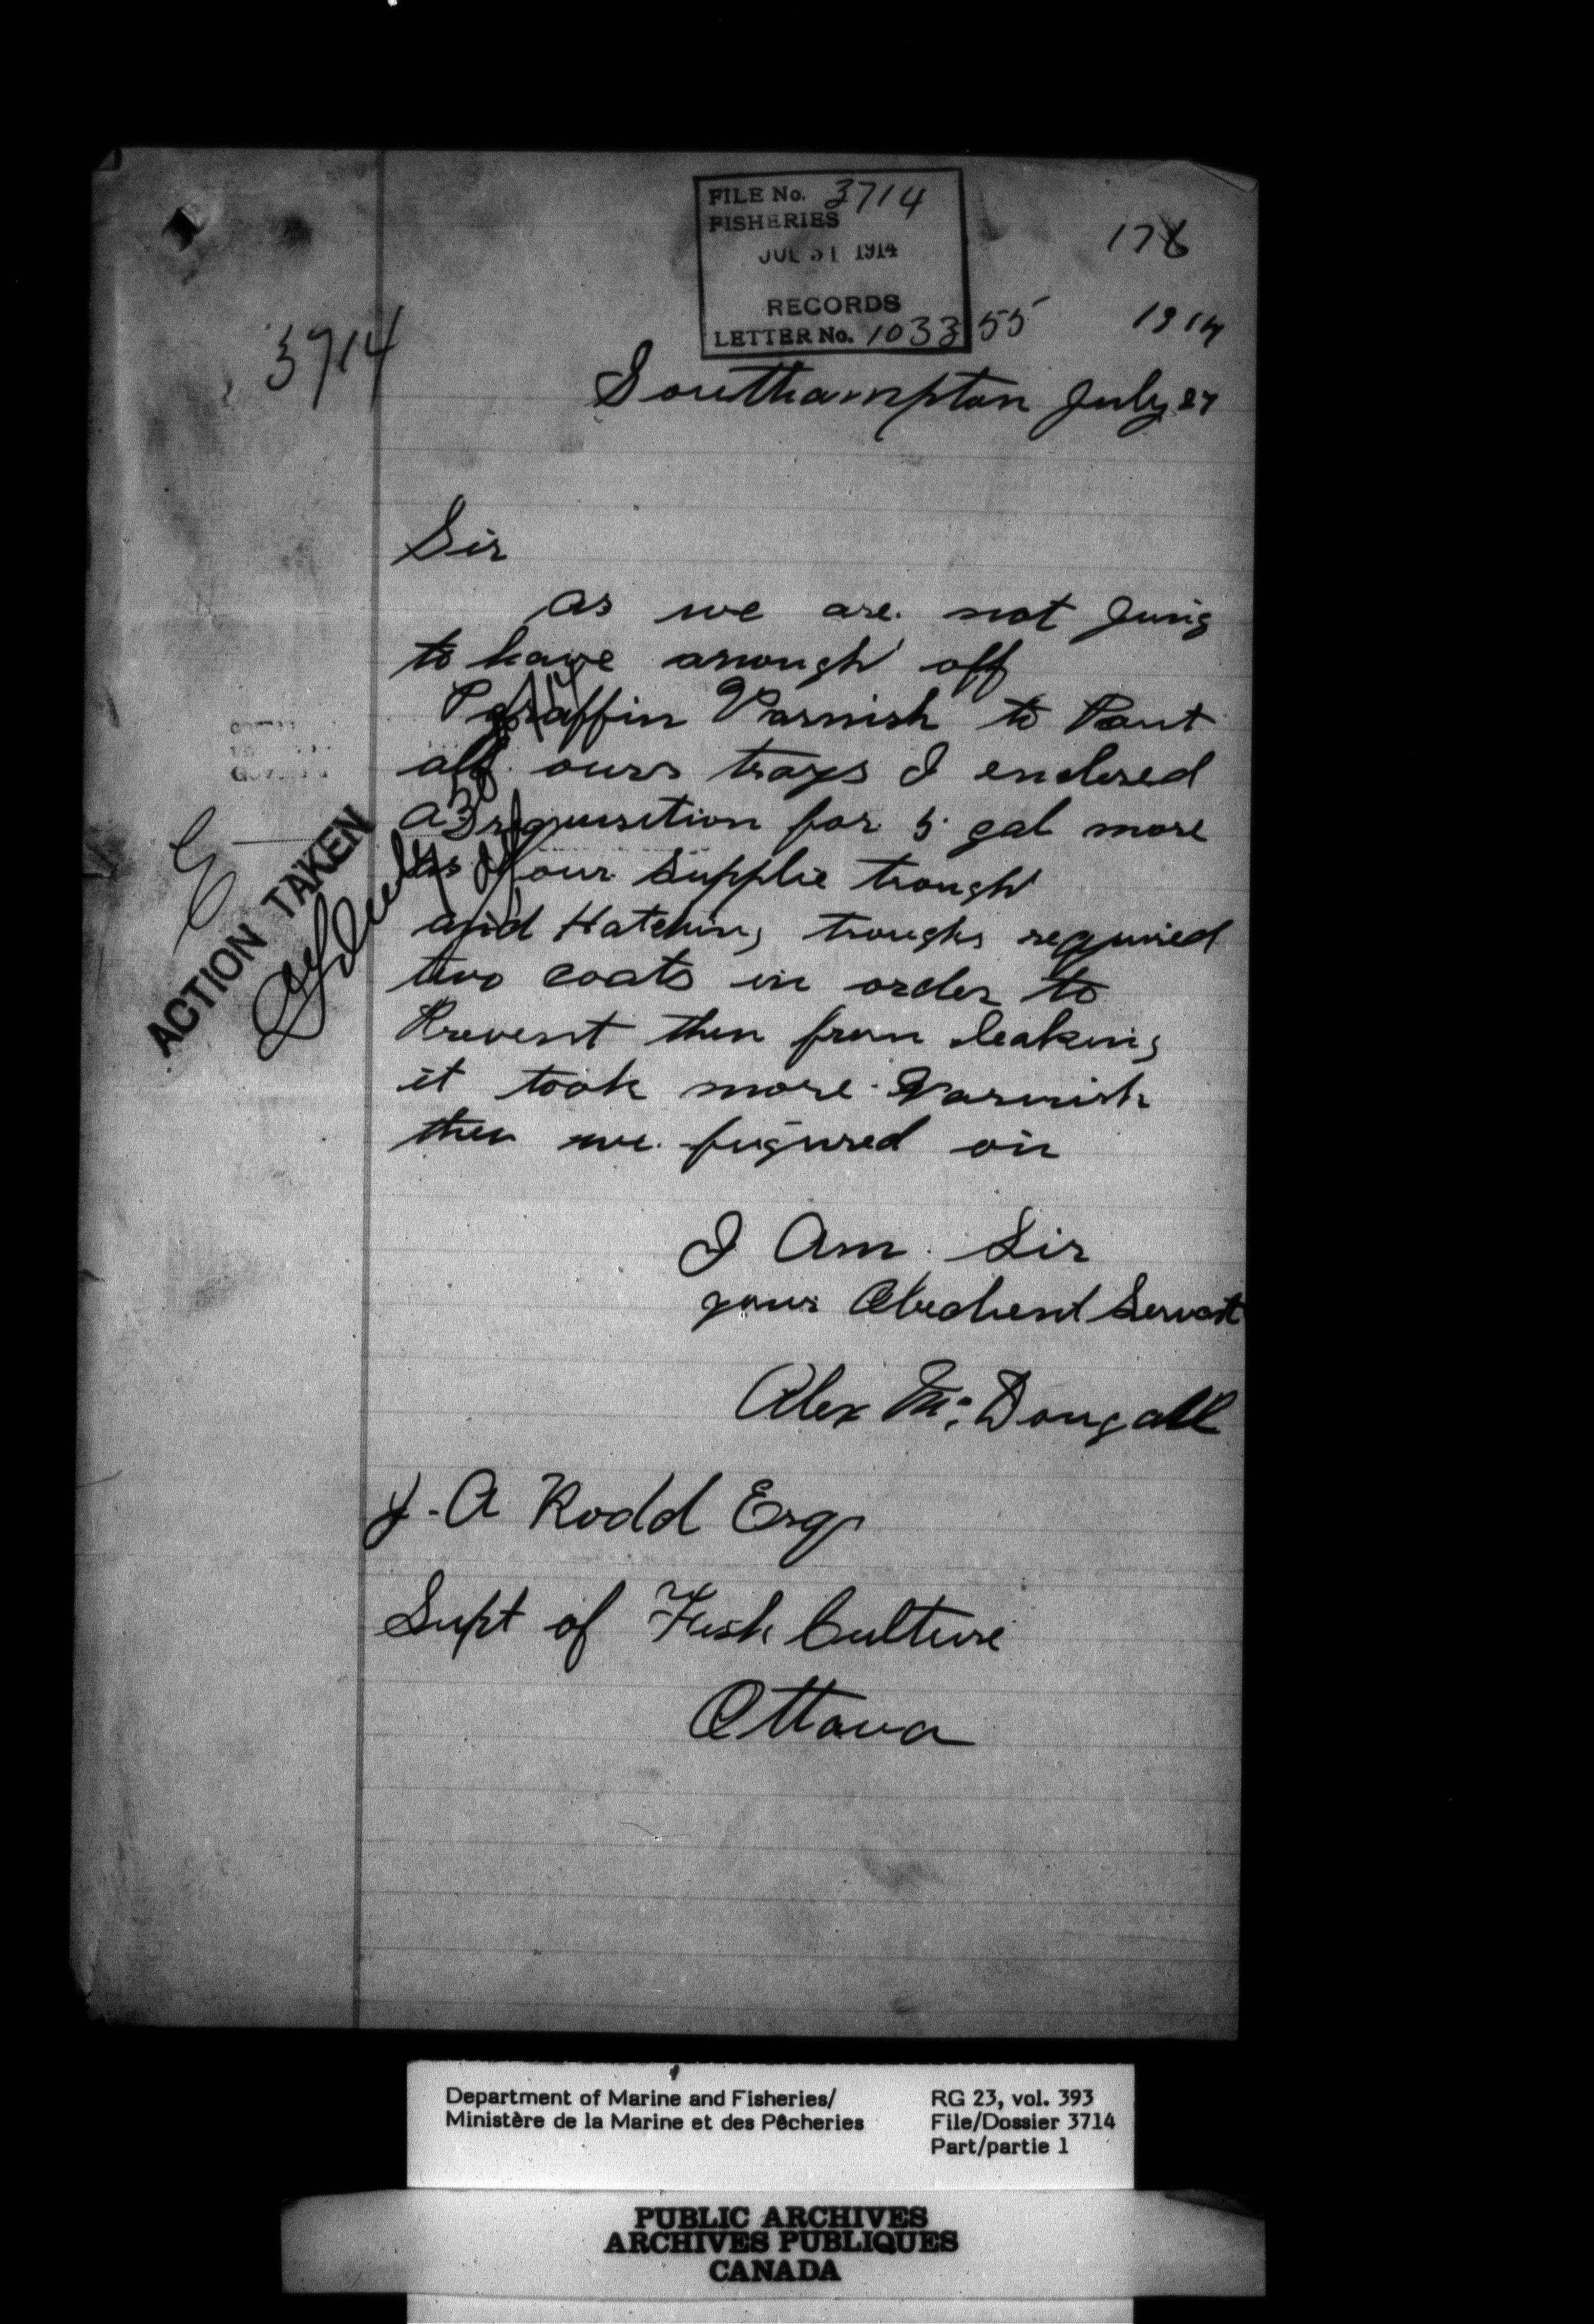 FILE No. 3714
FISHERIES
JUL 31 1914
RECORDS
LETTER No. 103355
178
3714
1914
Southampton July 27
Sir
as we are not going
to have anough off
Paraffin Varnish to Paint
all ours trays I enclosed
a requisition for 5 gal more
as our supplie trough
and Hatching troughs required
two coats in order to
Prevent then from leaking
it took more Varnish
then we figured on
ACTION TAKEN
I Am Sir
your Obedient Servant
Alex Mc Dougall
J. A Rodd Esq
Supt of Fish Culture
Ottawa
Department of Marine and Fisheries/
Ministère de la Marine et des Pêcheries
RG 23, vol. 393
File/Dossier 3714
Part/partie 1
PUBLIC ARCHIVES
ARCHIVES PUBLIQUES
CANADA